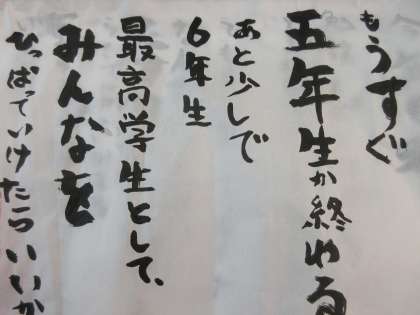 もうすぐ
五年生が終わる
あと少しで
6年生
最高学生として、
みんなを
ひっぱっていけたらいいか